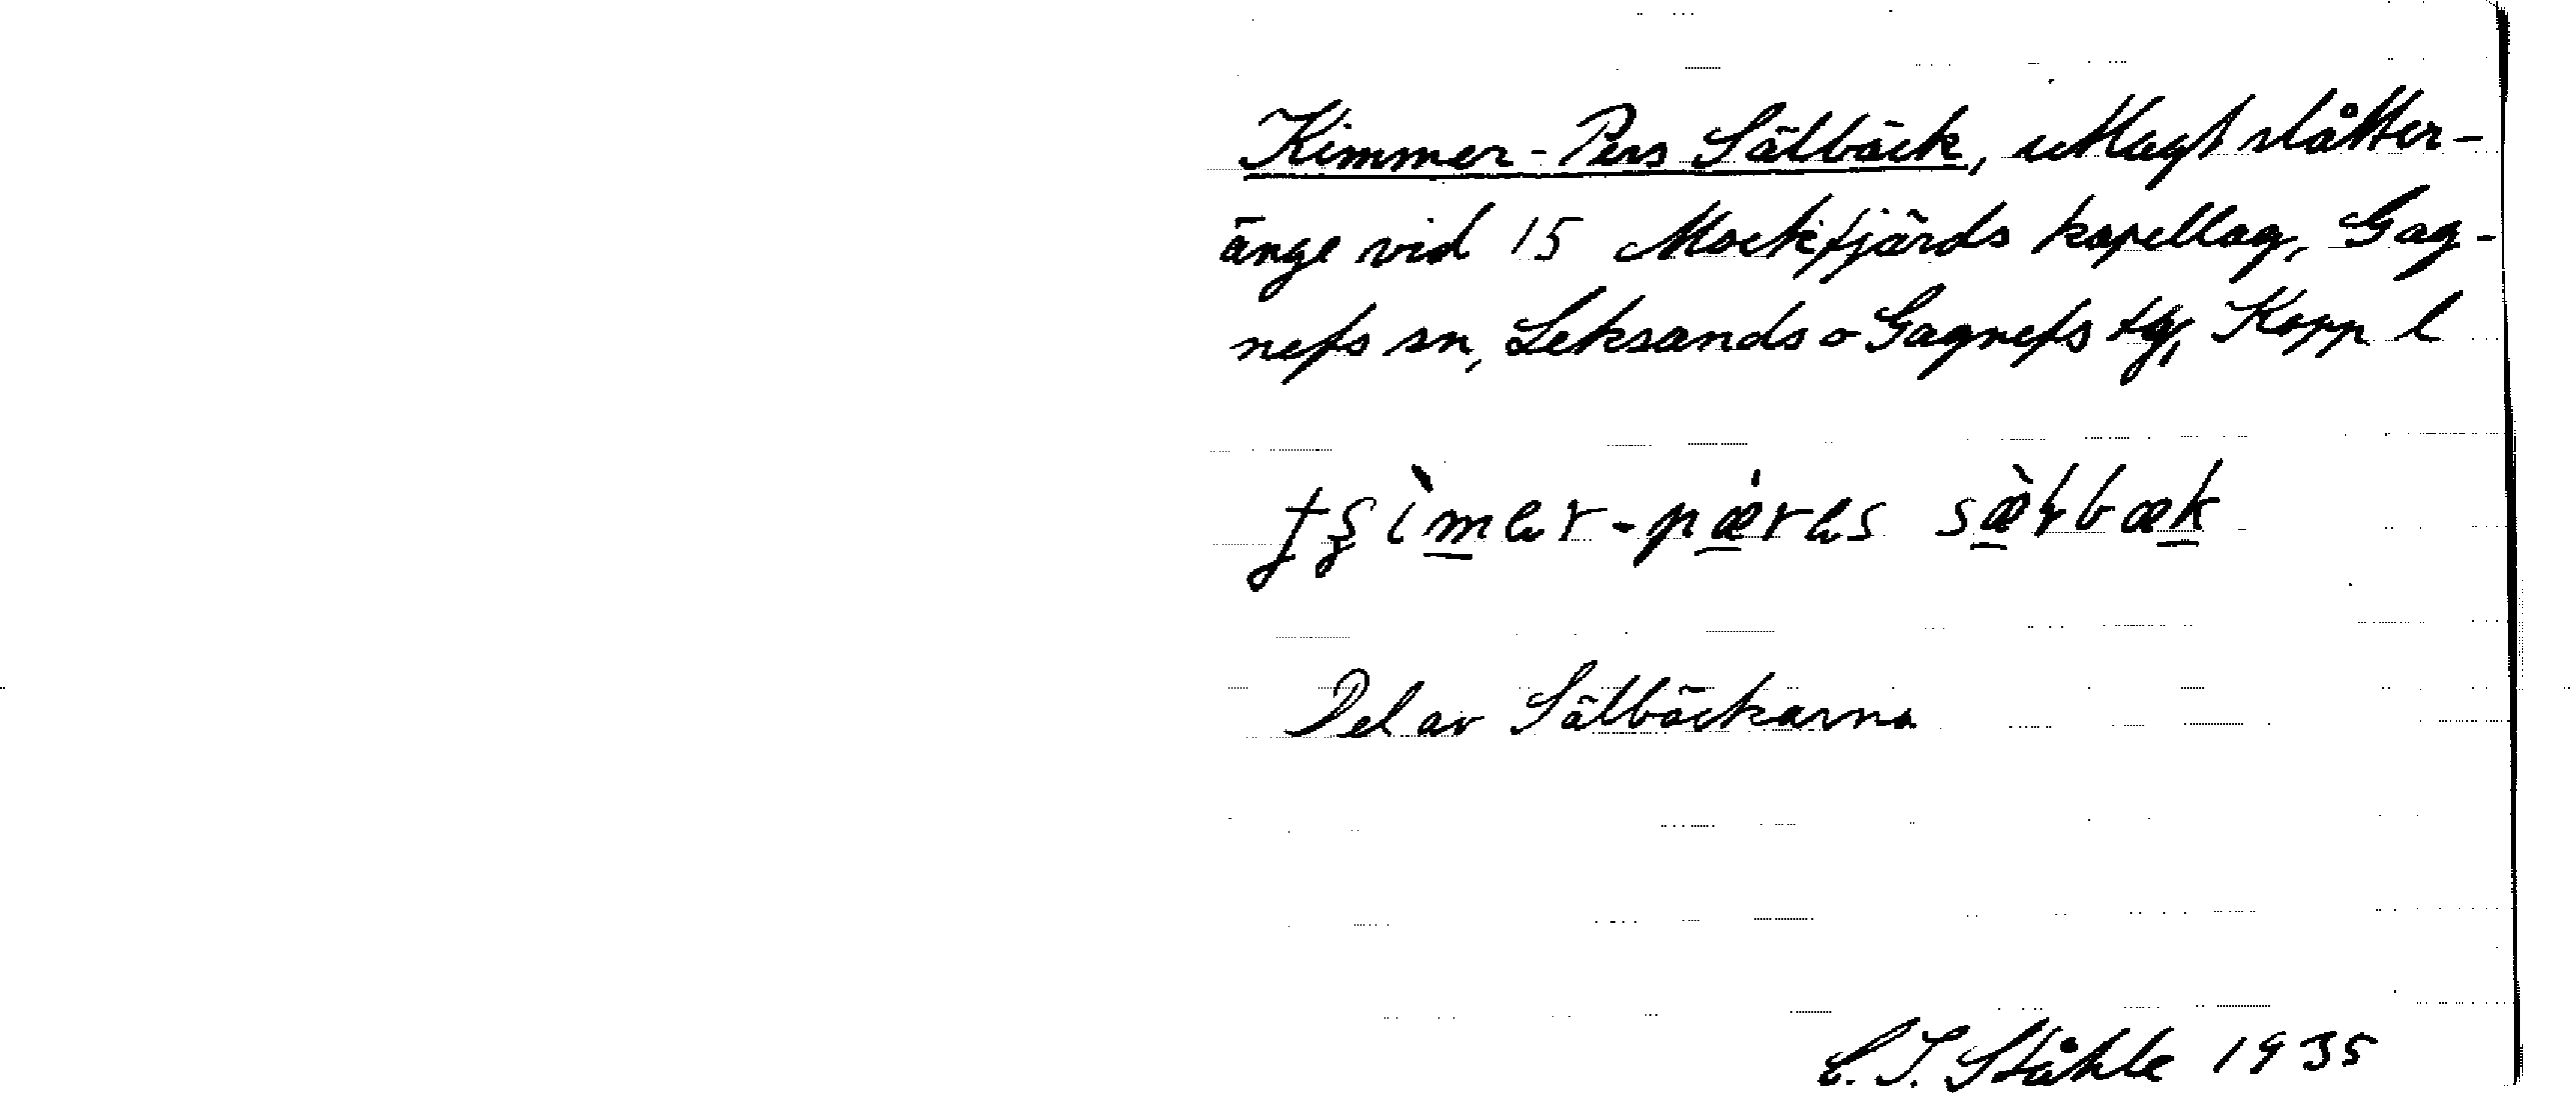 Kimmer-Pers Sälbäck, utlagt slåtter-
änge vid 15 Mockfjärds kapellag, Gag-
nefs sn, Leksands o Gagnefs tg, Kopp l
Del av Sälbäckarna
C. I. Ståhle 1935